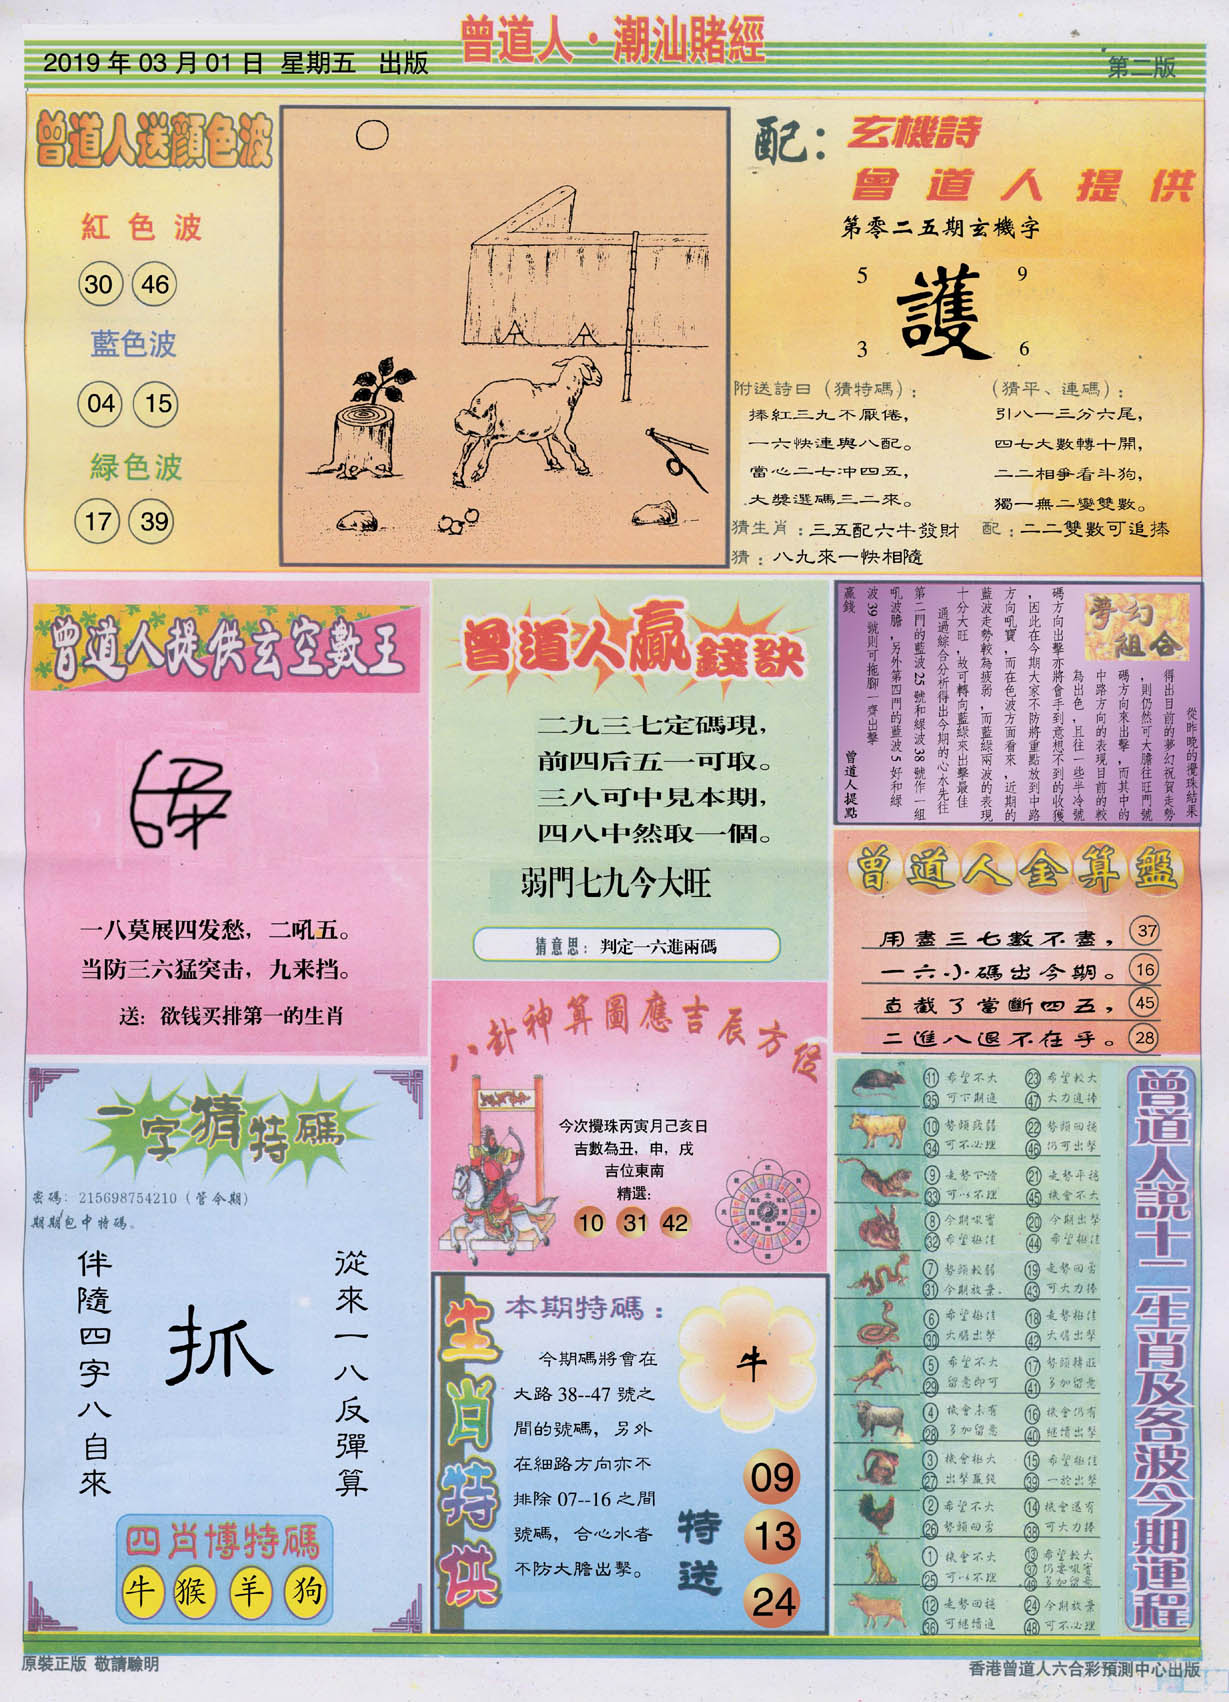 曾道人·潮汕賭經
2019 年 03 月 01 日 星期五 出版
第二版
曾道人送顏色波
紅色波
30 46
藍色波
04 15
緑色波
17 39
配：玄機詩
曾道人提供
第零二五期玄機字
5 9
護
3 6
附送詩曰（猜特碼）：
捧紅三九不厭倦，
一六快連與八配。
當心二七冲四五，
大獎選碼三二來。
（猜平、連碼）：
引八一三分六尾，
四七大數轉十開，
二二相爭看斗狗，
獨一無二變雙數。
猜生肖：三五配六牛發財
配：二二雙數可追捧
猜：八九來一快相隨
曾道人提供玄空數王
一八莫展四发愁，二吼五。
当防三六猛突击，九来挡。
送：欲钱买排第一的生肖
曾道人贏錢訣
二九三七定碼現，
前四后五一可取。
三八可中見本期，
四八中然取一個。
弱門七九今大旺
猜意思：判定一六進兩碼
夢幻組合
從昨晚的攪珠結果
得出目前的夢幻祝賀走勢
，則仍然可大膽往旺門號
碼方向來出擊，而其中的
中路方向的表現目前的較
為出色，且往一些半冷號
碼方向出擊亦將會手到意想不到的收獲
，因此在今期大家不防將重點放到中路
方向吼寶，而在色波方面看來，近期的
藍波走勢較為疲弱，而藍綠兩波的表現
十分大旺，故可轉向藍綠來出擊最佳
通過綜合分析得出今期的心水先往
第二門的藍波 25 號和綠波 38 號作一組
吼波膽，另外第四門的藍波 5 好和綠
波 39 號則可拖腳一齊出擊
贏錢
曾道人提點
曾道人金算盤
用盡三七數不盡， 37
一六小碼出今期。 16
直截了當斷四五， 45
二進八退不在乎。 28
一字猜特碼
密碼：215698754210（管今期）
期期包中特碼。
從來一八反彈算
抓
伴隨四字八自來
四肖博特碼
牛 猴 羊 狗
八卦神算圖應吉辰方位
今次攪珠丙寅月己亥日
吉數為丑，申，戌
吉位東南
精選：
10 31 42
生肖特供
本期特碼：
今期碼將會在
大路 38--47 號之
間的號碼，另外
在細路方向亦不
排除 07--16 之間
號碼，合心水者
不防大膽出擊。
牛
特送
09
13
24
曾道人説十二生肖及各波今期運程
11 希望不大 23 希望較大
35 可下期進 47 大力進捧
10 勢頭疲弱 22 勢頭回穩
34 可不必理 46 仍可出擊
9 走勢下滑 21 走勢平穩
33 可以不理 45 機會不大
8 今期吸寶 20 今期出擊
32 希望極佳 44 希望極佳
7 勢頭較弱 19 走勢回勇
31 今期放棄 43 可大力捧
6 希望極佳 18 走勢極佳
30 大膽出擊 42 大膽出擊
5 希望不大 17 勢頭轉旺
29 留意即可 41 多加留意
4 機會未有 16 機會仍有
28 多加留意 40 繼續出擊
3 機會極大 15 希望極佳
27 出擊贏錢 39 一於出擊
2 希望不大 14 機會還有
26 勢頭回勇 38 可大力捧
1 機會不大 13 希望較大
25 可以不理 37 仍要吸寶
49 多加留意
12 走勢回穩 24 今期放棄
36 可繼續進 48 可不必理
原裝正版 敬請驗明
香港曾道人六合彩預測中心出版